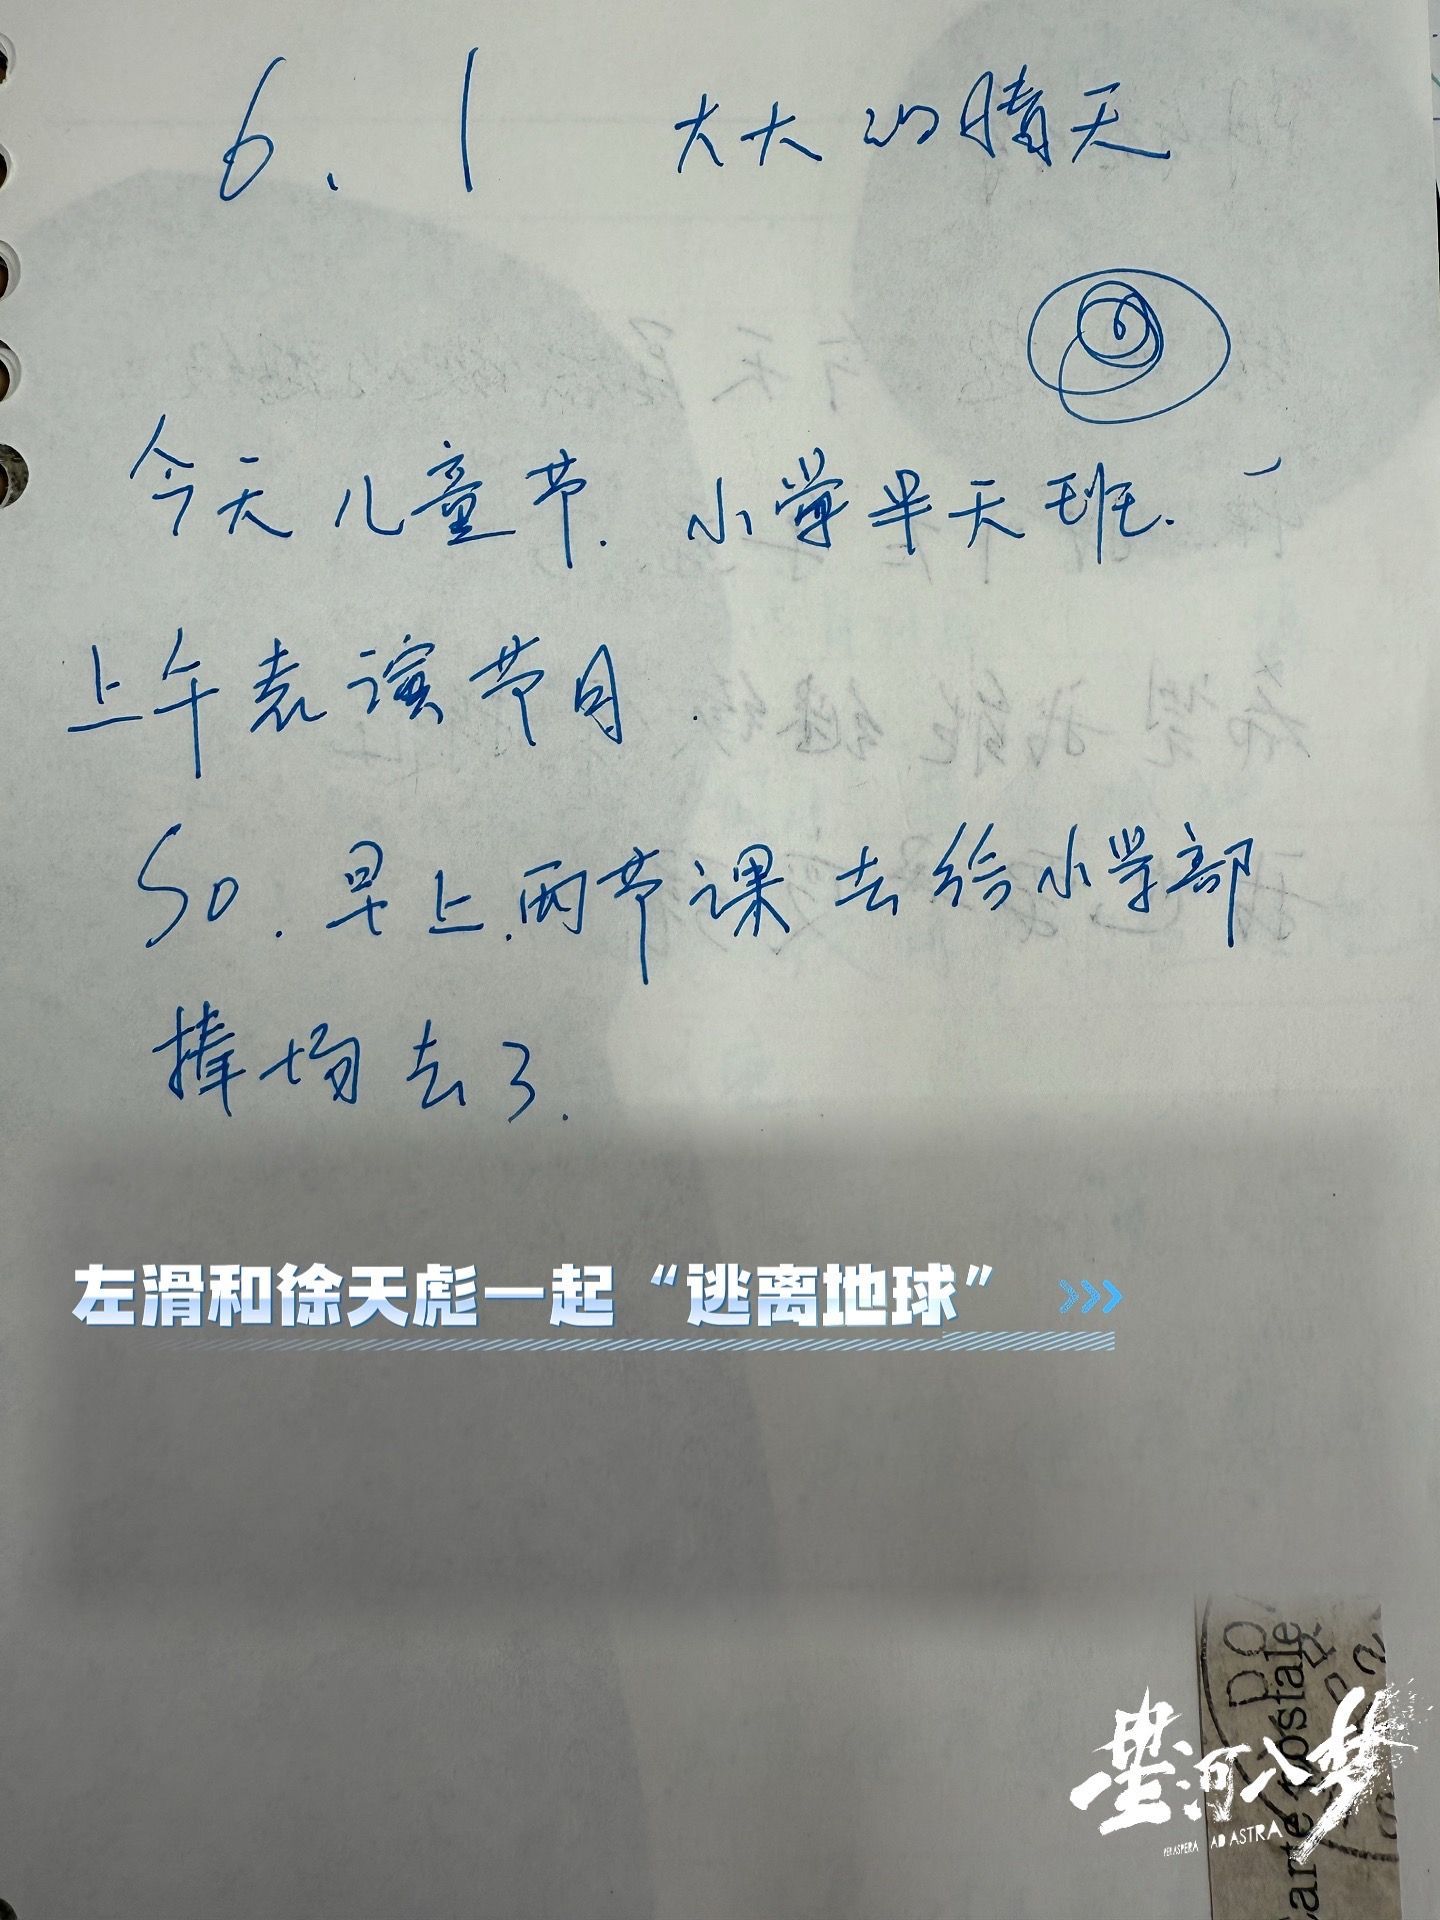 6.1 大大的晴天
今天儿童节.小学半天班.
上午表演节目.
SO.早上两节课去给小学部
捧场去了.
左滑和徐天彪一起“逃离地球” >>>
星河入梦
PER ASPERA AD ASTRA
DO
Carte postale